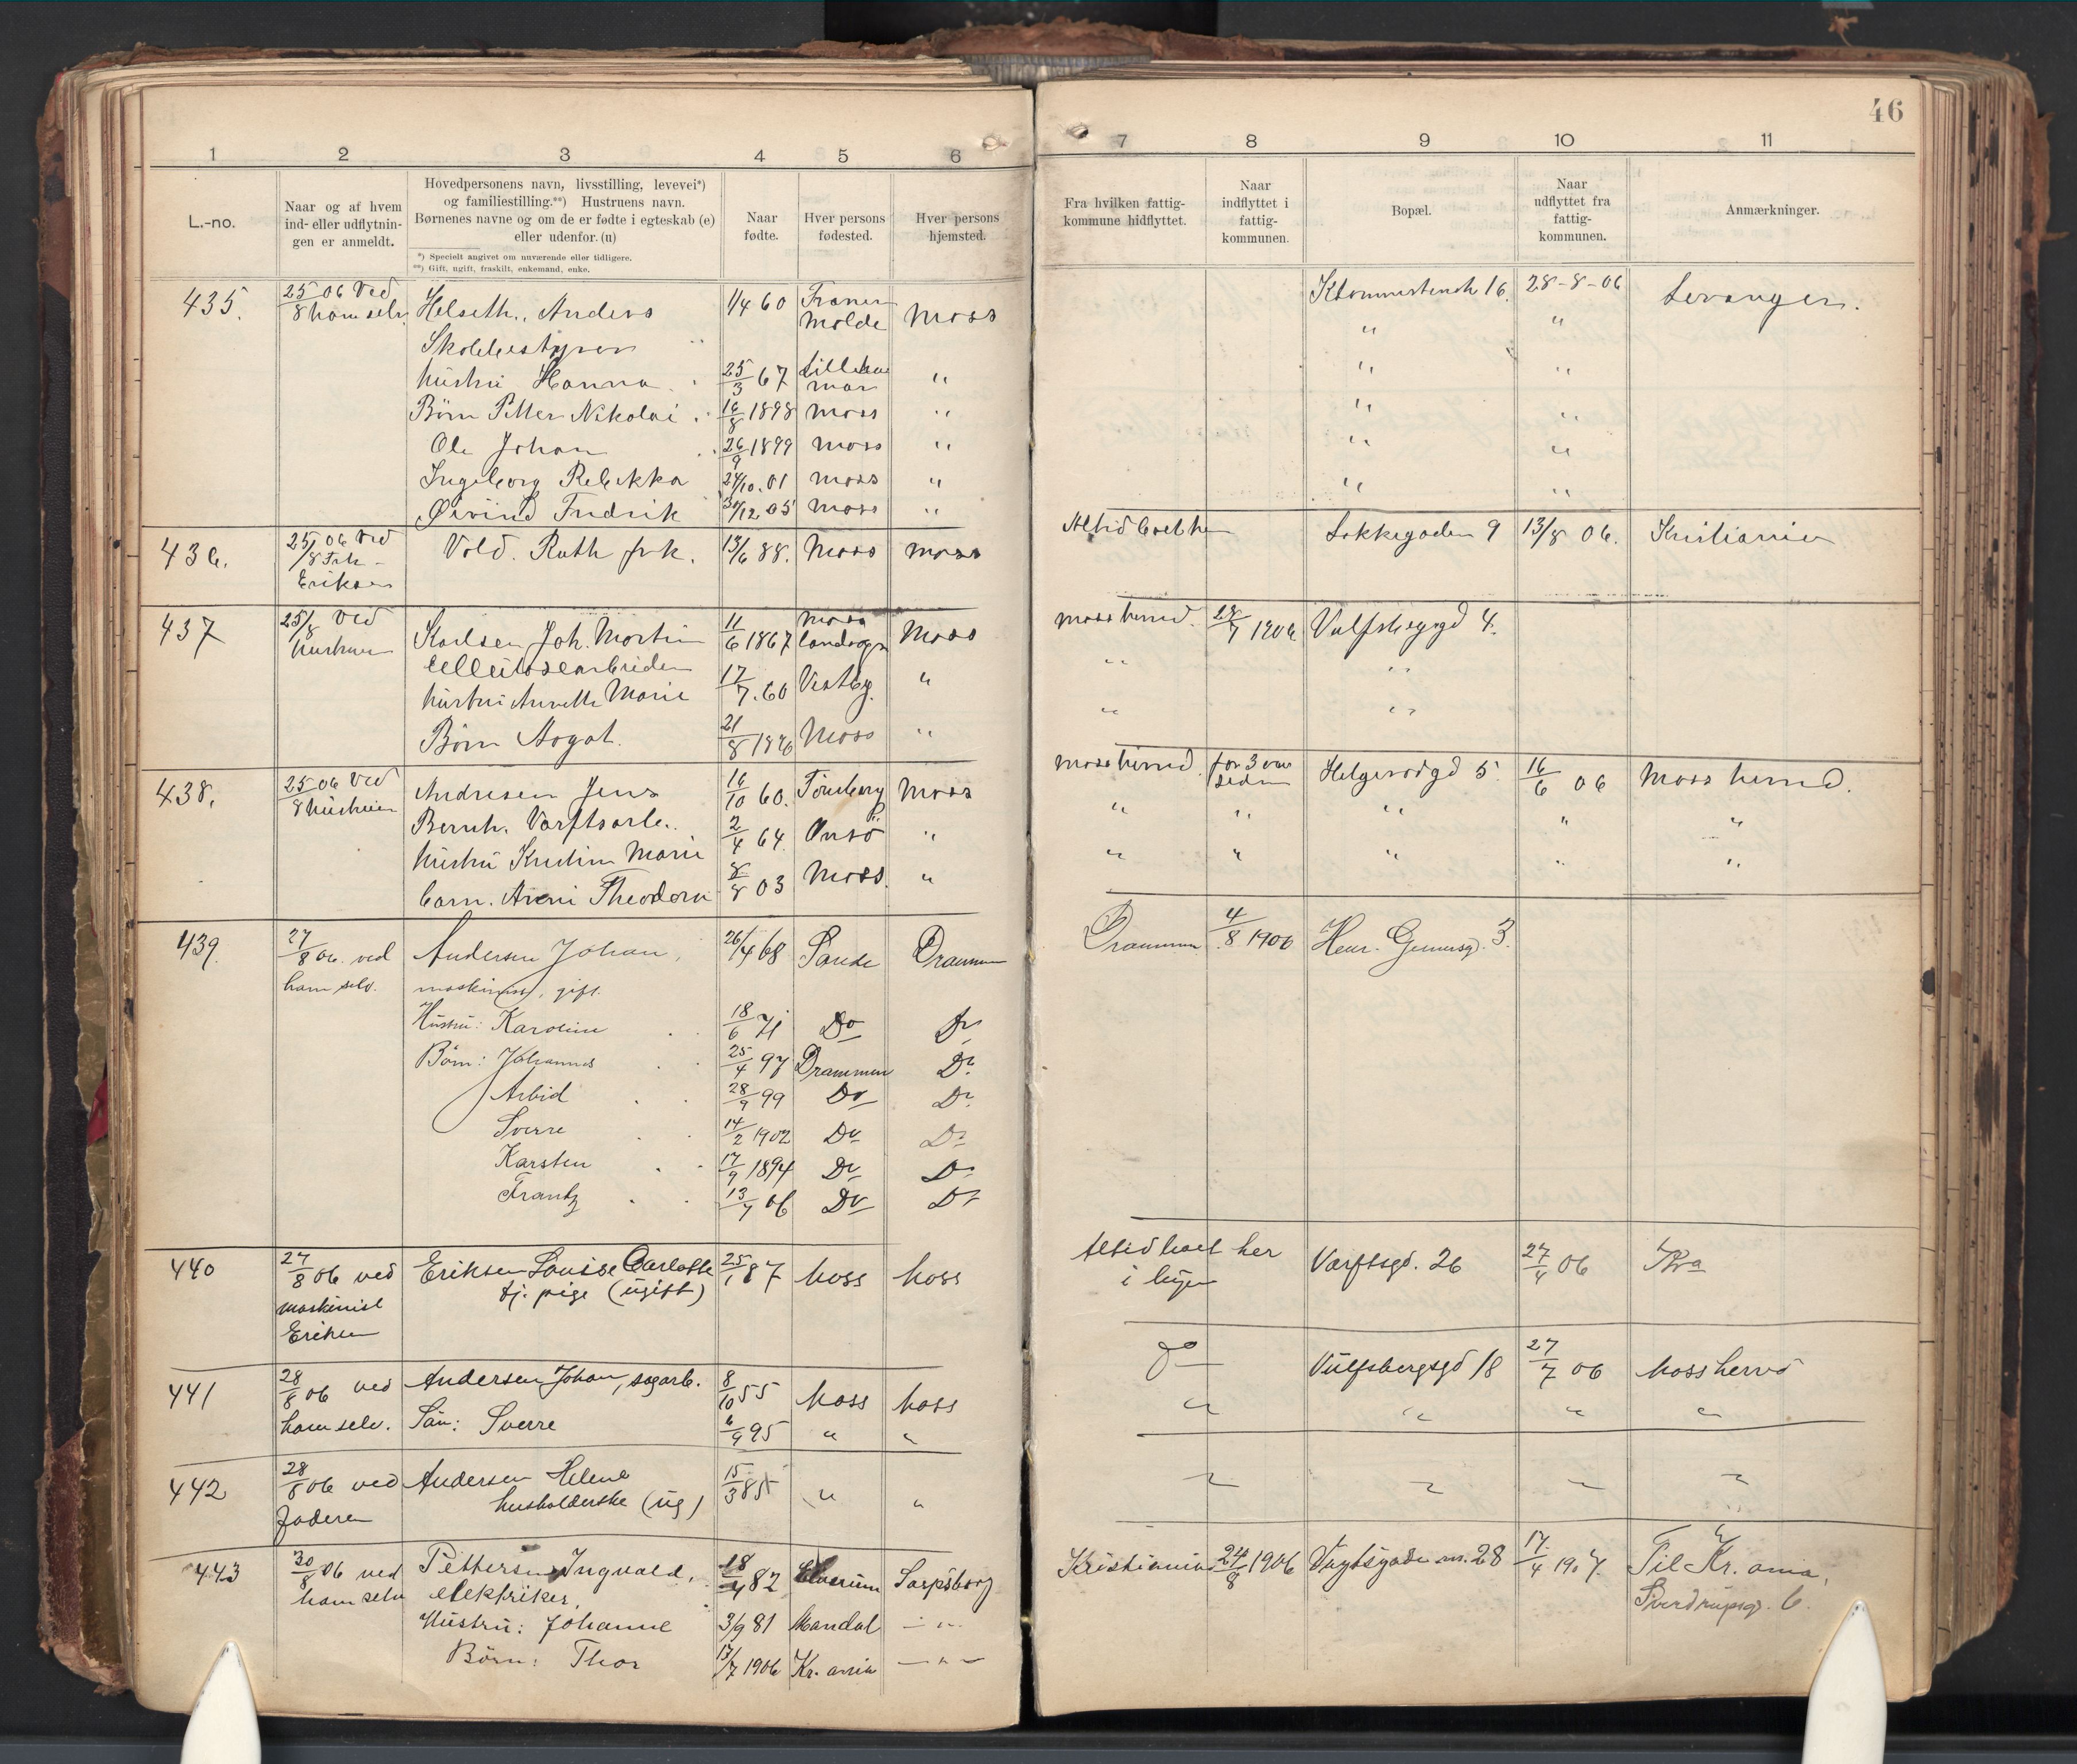 46
1 2 3 4 5 6 7 8 9 10 11
L.-no.
Naar og af hvem
ind- eller udflytnin-
gen er anmeldt.
Hovedpersonens navn, livsstilling, levevei*)
og familiestilling.**) Hustruens navn.
Børnenes navne og om de er fødte i egteskab (e)
eller udenfor. (u)
*) Specielt angivet om nuværende eller tidligere.
**) Gift, ugift, fraskilt, enkemand, enke.
Naar
fødte.
Hver persons
fødested.
Hver persons
hjemsted.
Fra hvilken fattig-
kommune hidflyttet.
Naar
indflyttet i
fattig-
kommunen.
Bopæl.
Naar
udflyttet fra
fattig-
kommunen.
Anmærkninger.
435. 25/8 06 Ved ham selv Helseth, Anders 1/4 60 Molde Moss 16. 28-8-06 Levanger.
Skolebestyrer " "
hustru Hanna 25/3 67 Lilleham mar " " "
Børn Petter Nikolai 16/8 1898 Moss " " "
Ole Johan 26/9 1899 Moss " " "
Ingeborg Rebekka 24/10. 01 Moss " " "
Øivind Fredrik 30/12 05 Moss "
436. 25/8 06 Ved Frk Eriksen Vold. Ruth frk. 13/6 88. Moss Moss Altid boet her Løkkegaden 9 13/8 06. Kristiania
437 25/8 Ved hustruen Karlsen Joh. Martin 11/6 1867 Moss landsogn Moss Moss herred. 28/7 1906 4.
Cellulosearbeider " "
hustru Annette Marie 17/7. 60 Vestby " " "
Børn Aagot. 21/8 1896 Moss "
438. 25/8 06 Ved hustruen Andresen Jens 16/10 60. Tønsberg Moss Moss herred. for 3 aar siden Helgerødgd 5. 16/6 06 Moss herred.
Bernh. Værftsarb. " " " " "
hustru Kristine Marie 2/4 64 Onsö " " " " " "
barn. Theodora 8/8 03 Moss. "
439. 27/8 06. ved ham selv. Andersen Johan, 26/4 68 Sande Drammen Drammen 4/8 1906 Henr. Gernersgd. 3.
maskinist, gift.
Hustru: Karoline 18/6 71 Do Do
Børn: Johannes 25/4 97 Drammen Do
Arbid 28/9 99 Do Do
Sverre 14/2 1902 Do Do
Karsten 17/9 1894 Do Do
Frantz 13/7 06 Do Do
440 27/8 06 ved maskinist Eriksen Eriksen Louise Carlotte 25/1 87 Moss Moss Altid boet her i byen Værftsgd. 26 27/4 06 Kra
tj. pige (ugift)
441 28/8 06 ved ham selv. Andersen Johan, sagarb. 8/10 55 Moss Moss do Vulfsbergsgd 18 27/7 06 Moss herred
Søn: Sverre 6/9 95 " " " " " "
442 28/8 06 ved faderen Andersen Helene 15/3 85 " " " " " "
husholderske (ug)
443 30/8 06 ved ham selv Pettersen Ingvald, 18/4 82 Elverum Sarpsborg Kristiania 24/8 1906 Vogtsgade nr. 28 17/4 1907. Til Kr. ania,
elektriker, Sverdrupsgd. 6.
Hustru: Johanne 3/9 81 Mandal - " -
Børn: Thor 17/7 1906 Kr. ania - " -